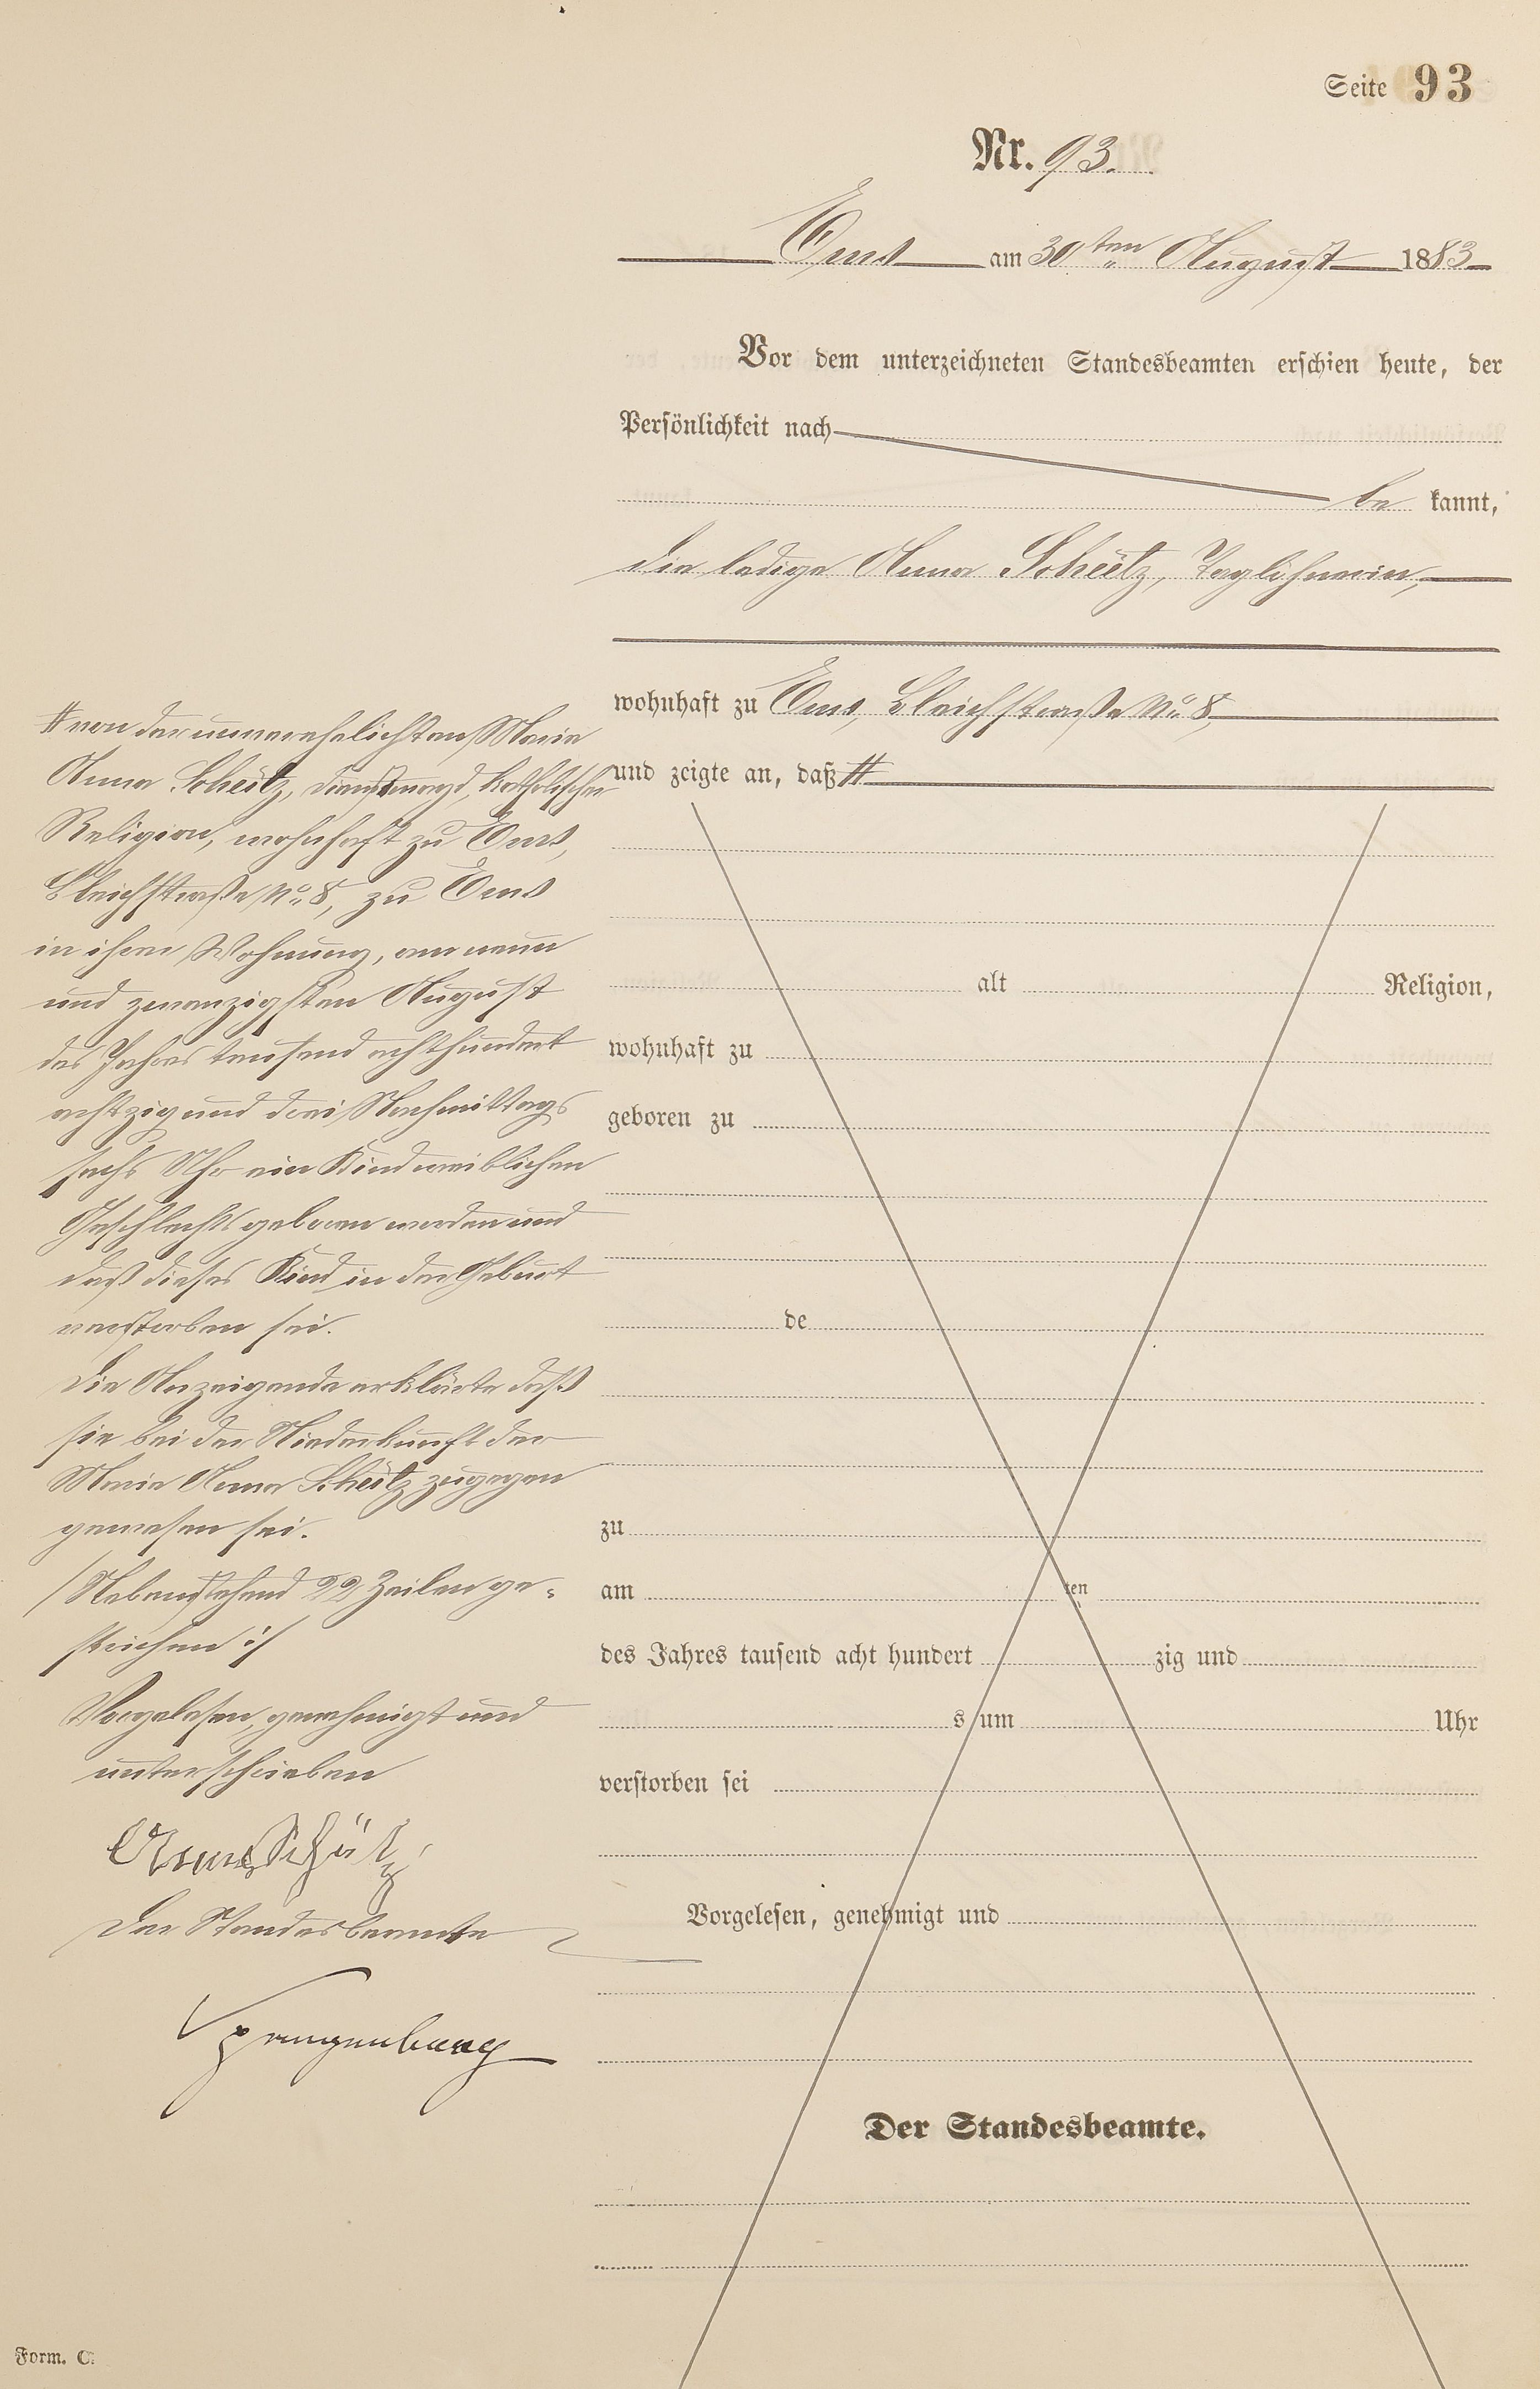 Seite 93
Nr. 93.
Ems am 30ten August 1883
Vor dem unterzeichneten Standesbeamten erschien heute, der
Persönlichkeit nach
be kannt,
die ledige Anna Scheütz, Taglöhnerin,
wohnhaft zu Ems, Bleichstraße No. 8,
und zeigte an, daß #
# von der unverehelichten Marie
Anna Scheütz, Dienstmagd, katholischer
Religion, wohnhaft zu Ems,
Bleichstraße No. 8, zu Ems
in ihrer Wohnung, am neun
und zwanzigsten August
des Jahres tausend achthundert
achtzig und drei Nachmittags
sechs Uhr ein Kind weiblichen
Geschlechts geboren worden und
daß dieses Kind in der Geburt
verstorben sei.
Die Anzeigende erklärte daß
sie bei der Niederkunft der
Marie Anna Scheütz zugegen
gewesen sei.
/Nebenstehend 22 Zeilen ge-
strichen :/
Vorgelesen, genehmigt und
unterschrieben
Anna Schütz
Der Standesbeamte
Spangenberg
alt Religion,
wohnhaft zu
geboren zu
de
zu
am ten
des Jahres tausend acht hundert zig und
s um Uhr
verstorben sei
Vorgelesen, genehmigt und
Der Standesbeamte.
Form. C.